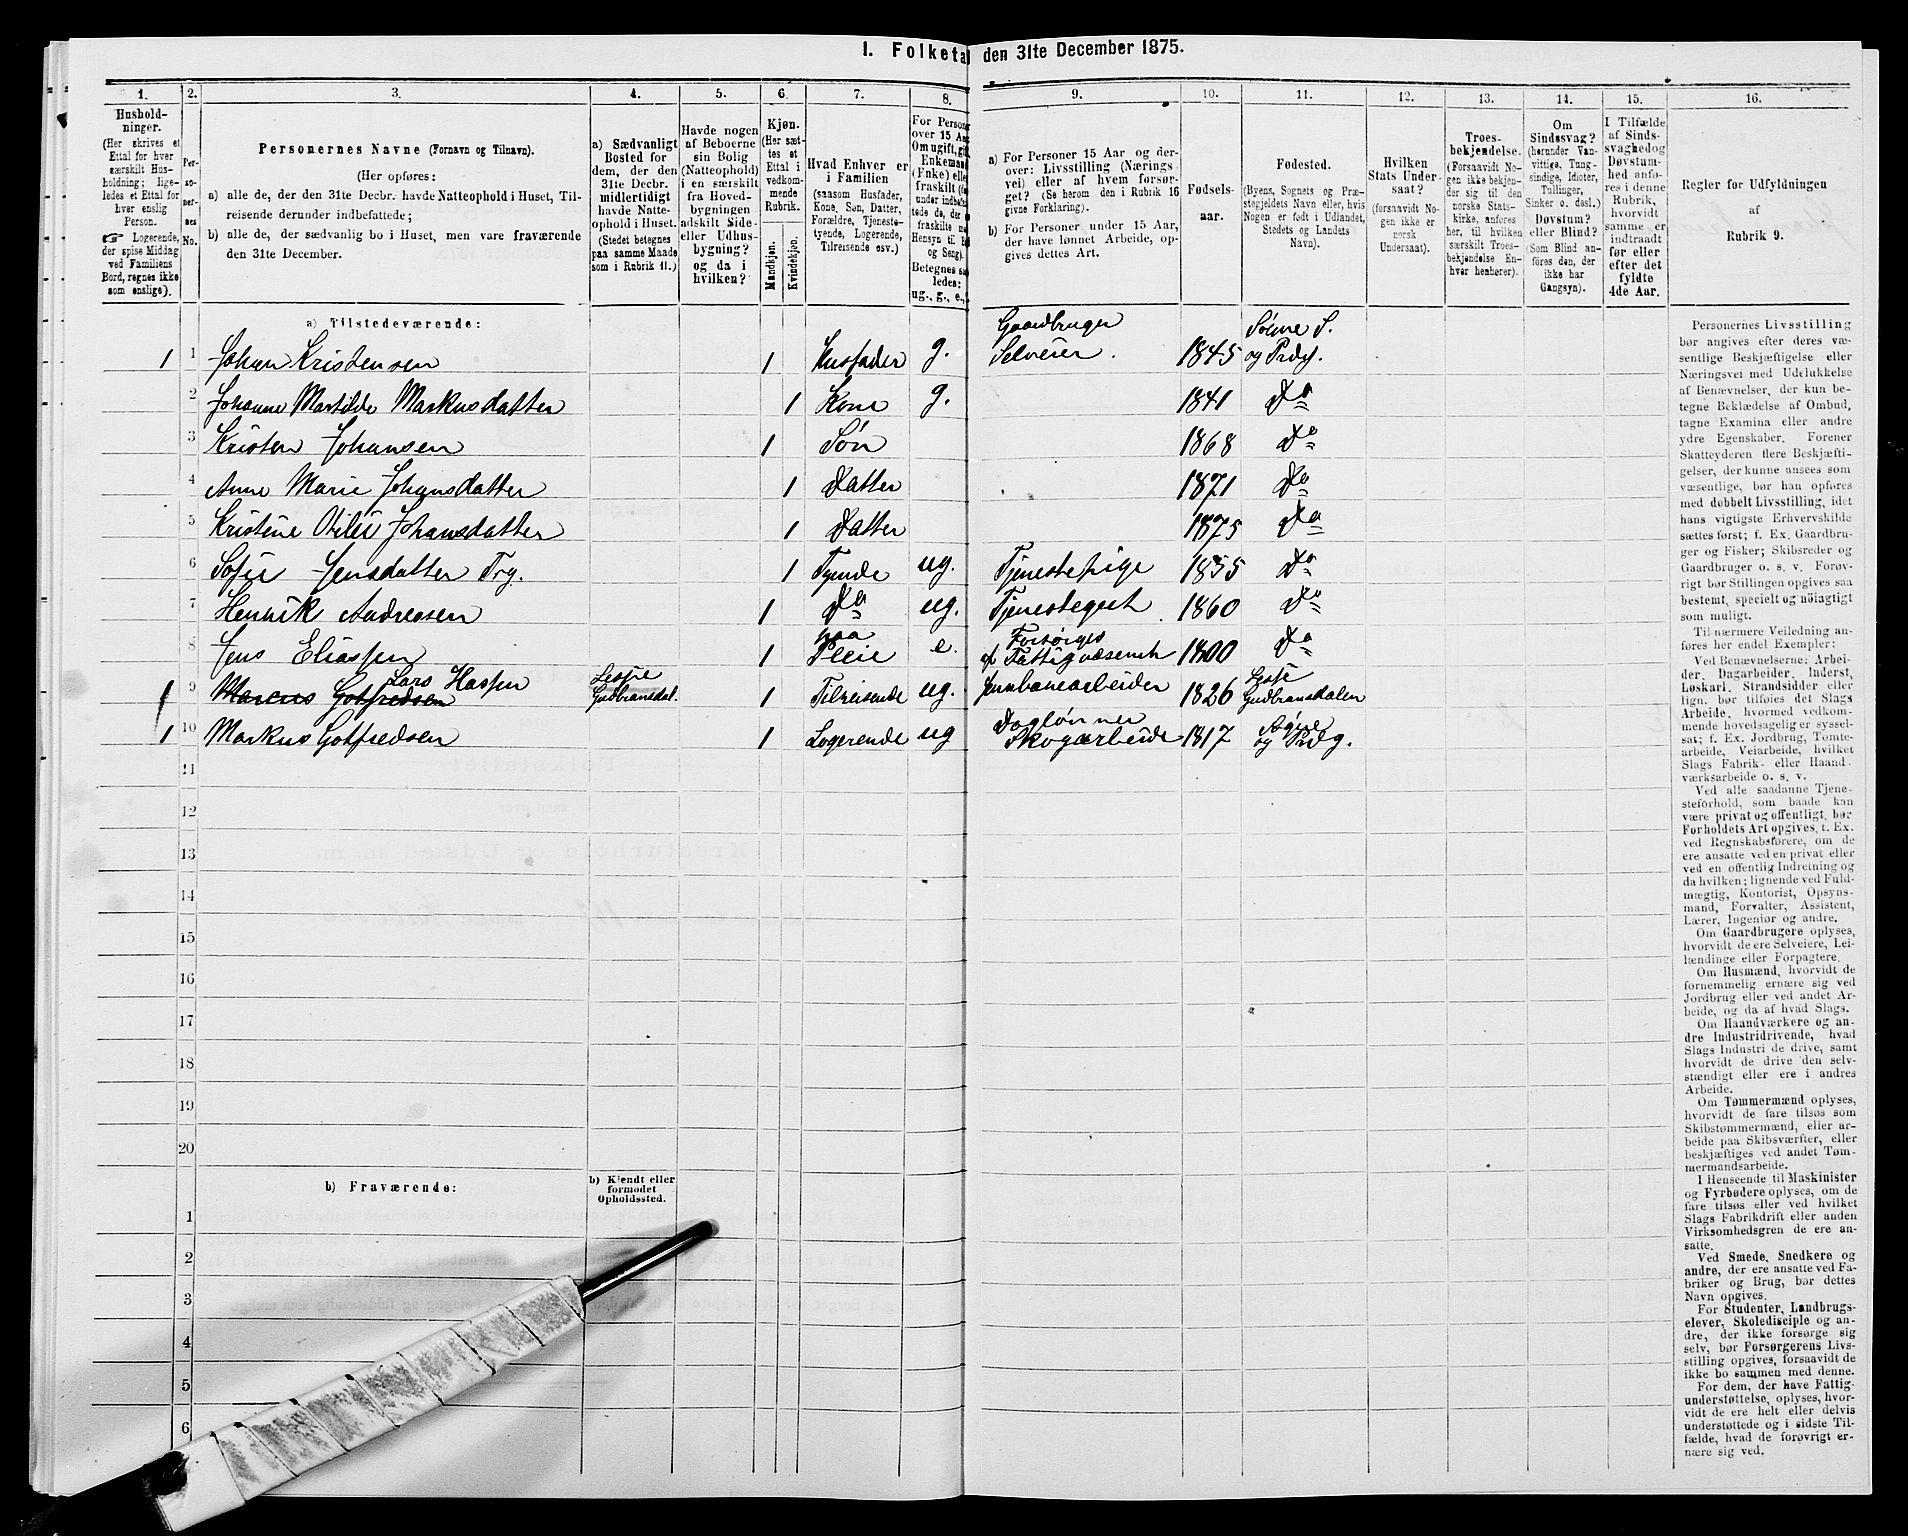 I. Folketal den 31te December 1875.
1. 2. 3. 4. 5. 6. 7. 8. 9. 10. 11. 12. 13. 14. 15. 16.
Hushold-
ninger.
(Her skrives et
Ettal for hver
særskilt Hus-
holdning; lige-
ledes et Ettal for
hver enslig
Person.
☞ Logerende,
der spise Middag
ved Familiens
Bord, regnes ikke
som enslige).
Per-
so-
ner-
nes
No.
Personernes Navne (Fornavn og Tilnavn).
(Her opføres:
a) alle de, der den 31te Decbr. havde Natteophold i Huset, Til-
reisende derunder indbefattede;
b) alle de, der sædvanlig bo i Huset, men vare fraværende
den 31te December.
a) Sædvanligt
Bosted for
dem, der den
31te Decbr.
midlertidigt
havde Natte-
ophold i Huset.
(Stedet betegnes
paa samme Maade
som i Rubrik 11.)
Havde nogen
af Beboerne
sin Bolig
(Natteophold)
i en særskilt
fra Hoved-
bygningen
adskilt Side-
eller Udhus-
bygning?
og da i
hvilken?
Kjøn.
(Her sæt-
tes et
Ettal i
vedkom-
mende
Rubrik.
Mandkjøn.
Kvindekjøn.
Hvad Enhver er
i Familien
(saasom Husfader,
Kone, Søn, Datter,
Forældre, Tjeneste-
tyende, Logerende,
Tilreisende osv.)
For Person
over 15 Aa
Om ugift, gif
Enkemand
(Enke) elle
fraskilt
Betegnes sa
ledes:
ug., g., e.,
a) For Personer 15 Aar og der-
over: Livsstilling (Nærings
vei) eller af hvem forsør-
get? (Se herom den i Rubrik 16
givne Forklaring).
b) For Personer under 15 Aar,
der have lønnet Arbeide, op-
gives dettes Art.
Fødsels-
aar.
Fødested.
(Byens, Sognets og Præ-
stegjeldets Navn eller, hvis
Nogen er født i Udlandet,
Stedets og Landets
Navn).
Hvilken
Stats Under-
saat?
(forsaavidt No-
gen ikke er
norsk
Undersaat).
Troes-
bekjendelse.
(Forsaavidt No-
gen ikke bekjen-
der sig til den
norske Stats-
kirke, anføres
her, til hvilken
særskilt Troes-
bekjendelse En-
hver henhører).
Om
Sindssvag?
(herunder Van-
vittige, Tung-
sindige, Idioter,
Tullinger,
Sinker o. desl.)
Døvstum?
eller Blind?
(Som Blind an-
føres den, der
ikke har
Gangsyn).
I Tilfælde
af Sinds-
svaghed og
Døvstum-
hed anfø-
res i denne
Rubrik,
hvorvidt
samme er
indtraadt
før eller
efter det
fyldte
4de Aar.
Regler for Udfyldningen
af
Rubrik 9.
a) Tilstedeværende:
1 1 Johan Kristensen 1 Husfader g. Gaardbruger Selveier. 1845 Søgne S. og Prdgj.
2 Johanne Martilde Markusdatter 1 Kone g. 1841 Do
3 Kristen Johansen 1 Søn 1868 Do
4 Anne Marie Johansdatter 1 Datter 1871 Do
5 Kristine Otilie Johansdatter 1 Datter 1875 Do
6 Sofie Jensdatter Try. 1 Tyende ug. Tjenestepige 1855 Do
7 Henrik Andreasen 1 Do ug. Tjenestegut 1860 Do
8 Jens Eliassen 1 paa Pleie e. Forsørges af Fattigvæsenet 1800 Do
1 9 Marcus Gotfredsen Lars Hassen Lesje Gudbransdal. 1 Tilreisende ug. Jernbanearbeider 1826 Lesje Gudbransdalen
1 10 Markus Gotfredsen 1 Logerende ug Daglønner Skogarbeide 1817 Søgne og Prdg.
11
12
13
14
15
16
17
18
19
20
b) Fraværende:
b) Kjendt eller
formodet
Opholdssted.
1
2
3
4
5
6
Personernes Livsstilling
bør angives efter deres væ-
sentlige Beskjæftigelse eller
Næringsvei med Udelukkelse
af Benævnelser, der kun be-
tegne Beklædelse af Ombud,
tagne Examina eller andre
ydre Egenskaber. Forener
Skatteyderen flere Beskjæfti-
gelser, der kunne ansees som
væsentlige, bør han opføres
med dobbelt Livsstilling, idet
hans vigtigste Erhvervskilde
sættes først; f. Ex. Gaardbru-
ger og Fisker; Skibsreder og
Gaardbruger o. s. v. Forøv-
rigt bør Stillingen opgives saa
bestemt, specielt og nøiagtigt
som muligt.
Til nærmere Veiledning an-
føres her endel Exempler:
Ved Benævnelserne: Arbei-
der, Dagarbeider, Inderst,
Løskarl, Strandsidder eller
lign. bør tilføies det Slags
Arbeide, hvormed vedkom-
mende hovedsagelig er syssel-
sat; f. Ex. Jordbrug, Tomte-
arbeide, Veiarbeide, hvilket
Slags Fabrik- eller Haand-
værksarbeide o. s. v.
Ved alle saadanne Tjene-
steforhold, som baade kan
være privat og offentligt, bør
Forholdets Art opgives, t. Ex.
ved Regnskabsførere, om de
ere ansatte ved en privat eller
ved en offentlig Indretning og
da hvilken; lignende ved Fuld-
mægtig, Kontorist, Opsyns-
mand, Forvalter, Assistent,
Lærer, Ingeniør og andre.
Om Gaardbrugere oplyses,
hvorvidt de ere Selveiere, Lei-
lændinge eller Forpagtere.
Om Husmænd, hvorvidt de
fornemmelig ernære sig ved
Jordbrug eller ved andet Ar-
beide, og da af hvad Slags.
Om Haandværkere og an-
dre Industridrivende, hvad
Slags Industri de drive, samt
hvorvidt de drive den selv-
stændigt eller ere i andres
Arbeide.
Om Tømmermænd oplyses,
hvorvidt de fare tilsøs som
Skibstømmermænd, eller ar-
beide paa Skibsværfter, eller
beskjæftiges ved andet Tøm-
mermandsarbeide.
I Henseende til Maskinister
og Fyrbødere oplyses, om de
fare tilsøs eller ved hvilket
Slags Fabrikdrift eller anden
Virksomhedsgren de ere an-
satte.
Ved Smede, Snedkere og
andre, der ere ansatte ved Fa-
briker og Brug, bør dettes
Navn opgives.
For Studenter, Landbrugs-
elever, Skoledisciple og an-
dre, der ikke forsørge sig
selv, bør Forsørgerens Livs-
stilling opgives, forsaavidt de
ikke bo sammen med denne.
For dem, der have Fattig-
understøttelse, oplyses, hvor-
vidt de ere helt eller delvis
understøttede og i sidste Til-
fælde, hvad de forøvrigt er-
nære sig ved.